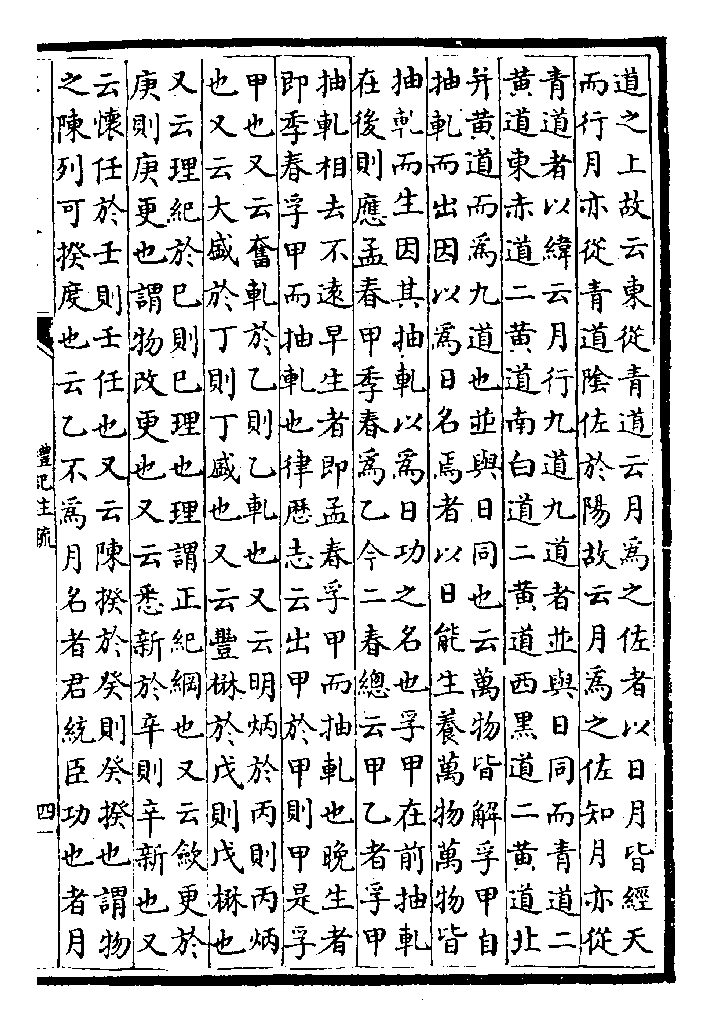 道之上故云東從青道云月為之佐者以日月皆經天
而行月亦從青道陰佐於陽故云月為之佐知月亦從
青道者以緯云月行九道九道者並與日同而青道二
黃道東赤道二黃道南白道二黃道西黑道二黃道北
并黃道而為九道也並與日同也云萬物皆解孚甲自
抽軋而出因以為日名焉者以日能生養萬物萬物皆
抽軋而生因其抽軋以為日功之名也孚甲在前抽軋
在後則應孟春甲季春為乙今二春總云甲乙者孚甲
抽軋相去不遠早生者即孟春孚甲而抽軋也晚生者
即季春孚甲而抽軋也律歷志云出甲於甲則甲是孚
甲也又云奮軋於乙則乙軋也又云明炳於丙則丙炳
也又云大盛於丁則丁盛也又云豐楙於戊則戊楙也
又云理紀於巳則巳理也理謂正紀綱也又云斂更於
庚則庚更也謂物改更也又云悉新於辛則辛新也又
云懷任於壬則壬任也又云陳揆於癸則癸揆也謂物
之陳列可揆度也云乙不為月名者君統臣功也者月
禮記注疏
四